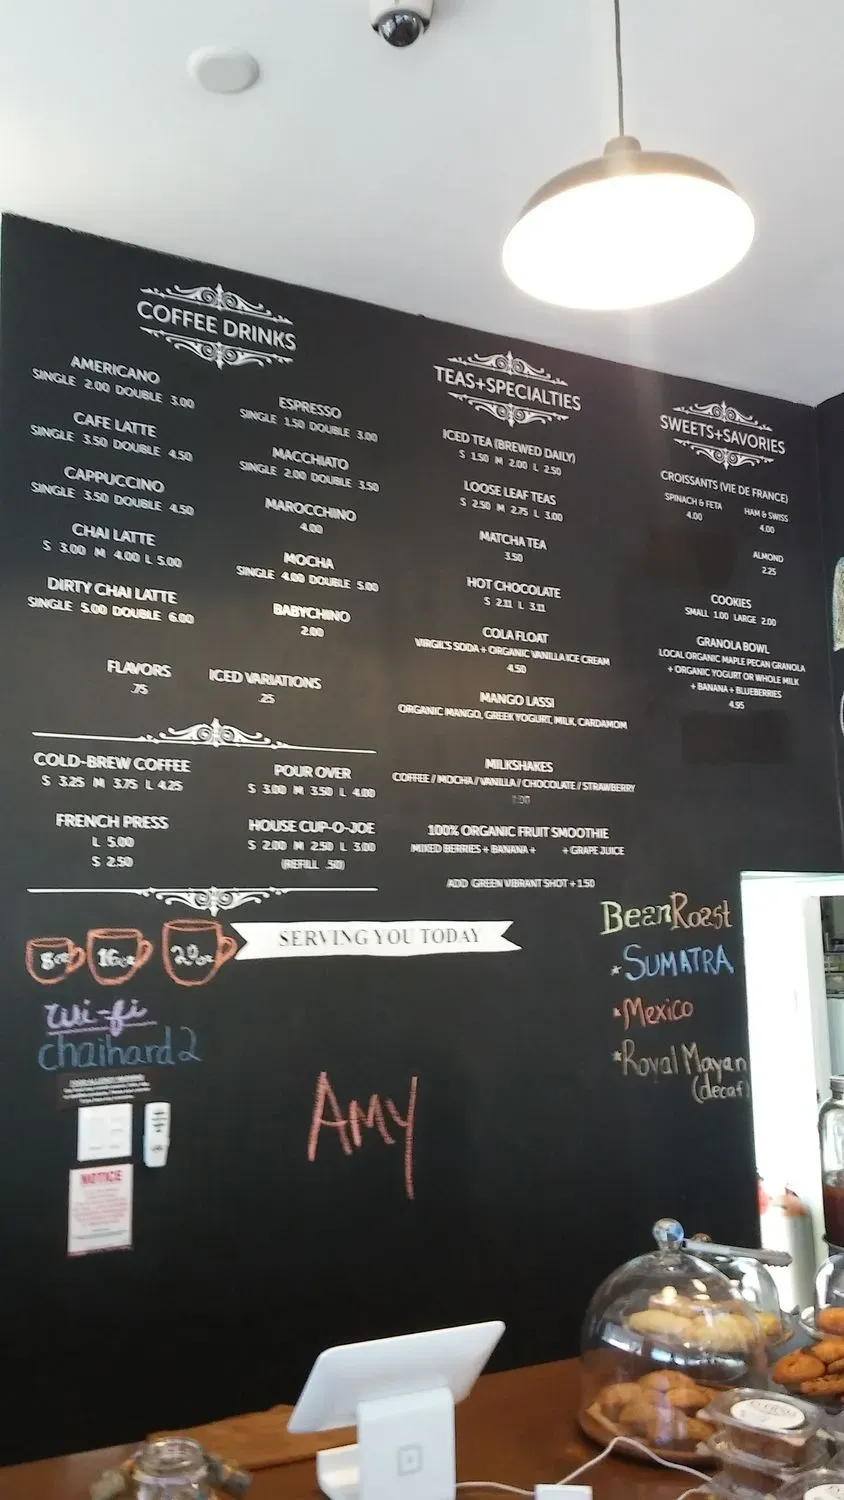 COFFEE DRINKS
AMERICANO
SINGLE 2.00 DOUBLE 3.00
CAFE LATTE
SINGLE 3.50 DOUBLE 4.50
CAPPUCCINO
SINGLE 3.50 DOUBLE 4.50
CHAI LATTE
S 3.00 M 4.00 L 5.00
DIRTY CHAI LATTE
SINGLE 5.00 DOUBLE 6.00
ESPRESSO
SINGLE 1.50 DOUBLE 3.00
MACCHIATO
SINGLE 2.00 DOUBLE 3.50
MAROCCHINO
4.00
MOCHA
SINGLE 4.00 DOUBLE 5.00
BABYCHINO
2.00
FLAVORS
.75
ICED VARIATIONS
.25
COLD-BREW COFFEE
S 3.25 M 3.75 L 4.25
FRENCH PRESS
L 5.00
S 2.50
POUR OVER
S 3.00 M 3.50 L 4.00
HOUSE CUP-O-JOE
S 2.00 M 2.50 L 3.00
(REFILL .50)
TEAS+SPECIALTIES
ICED TEA (BREWED DAILY)
S 1.50 M 2.00 L 2.50
LOOSE LEAF TEAS
S 2.50 M 2.75 L 3.00
MATCHA TEA
3.50
HOT CHOCOLATE
S 2.11 L 3.11
COLA FLOAT
VIRGIL'S SODA + ORGANIC VANILLA ICE CREAM
4.50
MANGO LASSI
ORGANIC MANGO, GREEK YOGURT, MILK, CARDAMOM
MILKSHAKES
COFFEE / MOCHA / VANILLA / CHOCOLATE / STRAWBERRY
100% ORGANIC FRUIT SMOOTHIE
MIXED BERRIES + BANANA + + GRAPE JUICE
ADD GREEN VIBRANT SHOT + 1.50
SWEETS+SAVORIES
CROISSANTS (VIE DE FRANCE)
SPINACH & FETA
4.00
HAM & SWISS
4.00
ALMOND
2.25
COOKIES
SMALL 1.00 LARGE 2.00
GRANOLA BOWL
LOCAL ORGANIC MAPLE PECAN GRANOLA
+ ORGANIC YOGURT OR WHOLE MILK
+ BANANA + BLUEBERRIES
4.95
8oz 16oz 20oz
SERVING YOU TODAY
AMY
Wi-fi
chaihard2
NOTICE
BeanRoast
*SUMATRA
*Mexico
*Royal Mayan
(decaf)